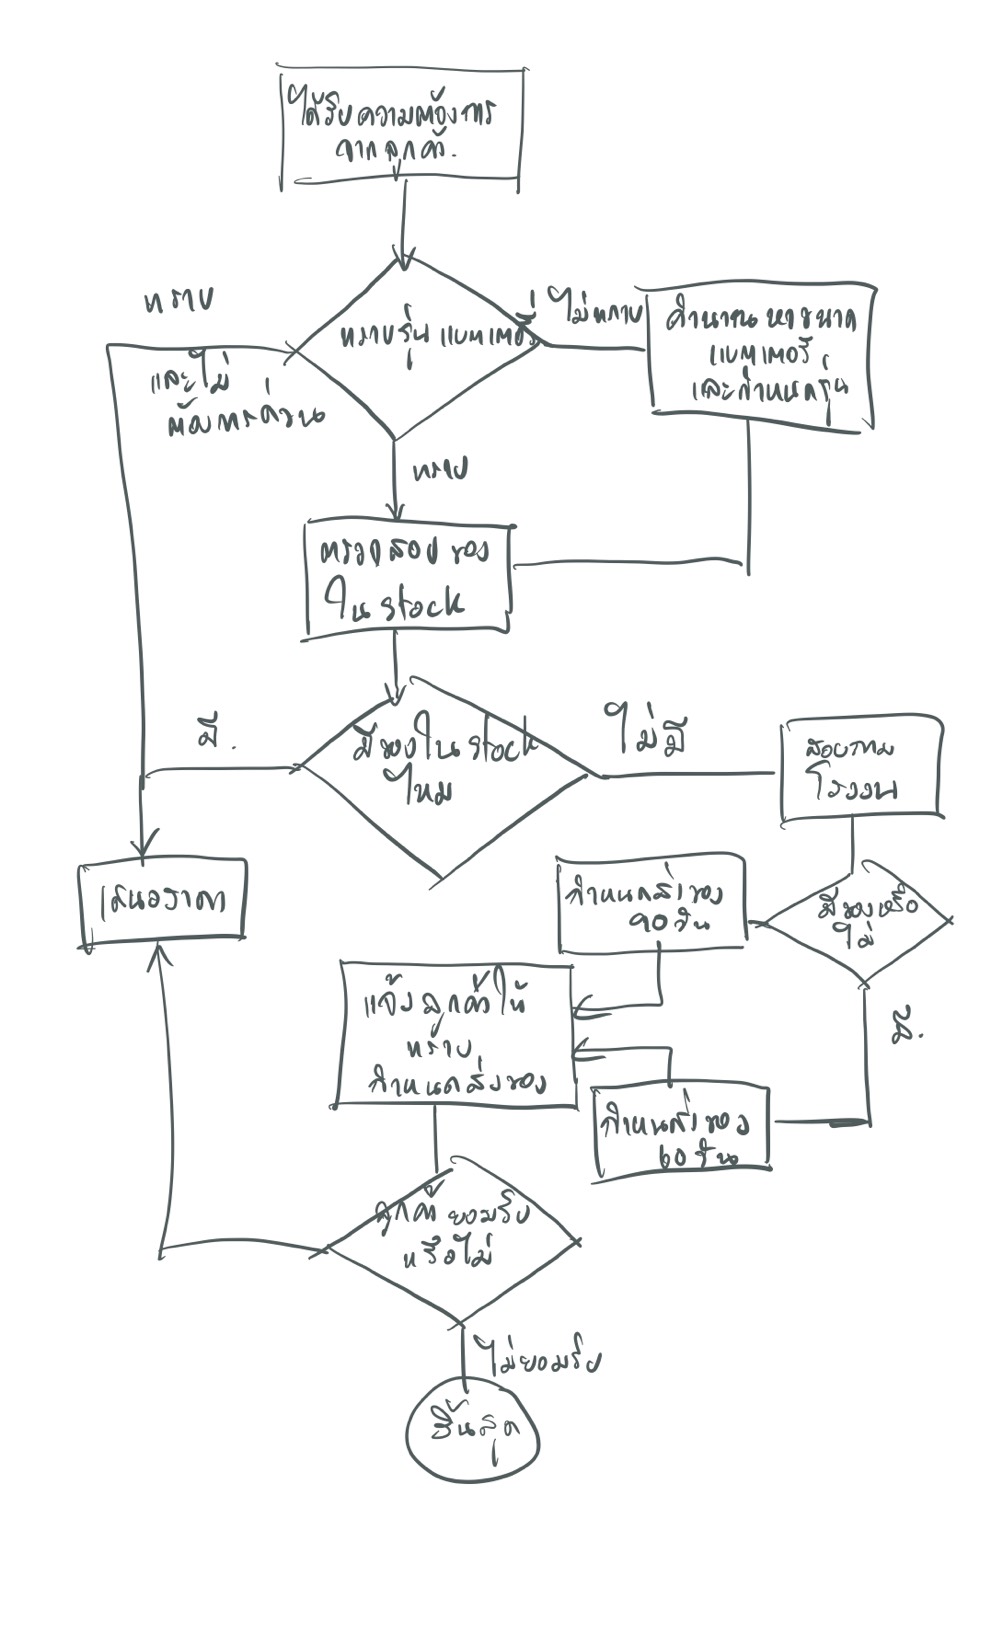 ได้รับความต้องการ
จากลูกค้า.
ทราบ
และไม่
ต้องการด่วน
ทราบรุ่นแบตเตอรี่
ไม่ทราบ
คำนวณหาขนาด
แบตเตอรี่
และกำหนดรุ่น
ทราบ
ตรวจสอบของ
ใน stock
มี.
มีของใน stock
ไหม
ไม่มี
สอบถาม
โรงงาน
เสนอราคา
กำหนดส่งของ
90 วัน
มีของหรือ
ไม่
แจ้งลูกค้าให้
ทราบ
กำหนดส่งของ
มี.
กำหนดส่งของ
60 วัน
ลูกค้ายอมรับ
หรือไม่
ไม่ยอมรับ
สิ้นสุด